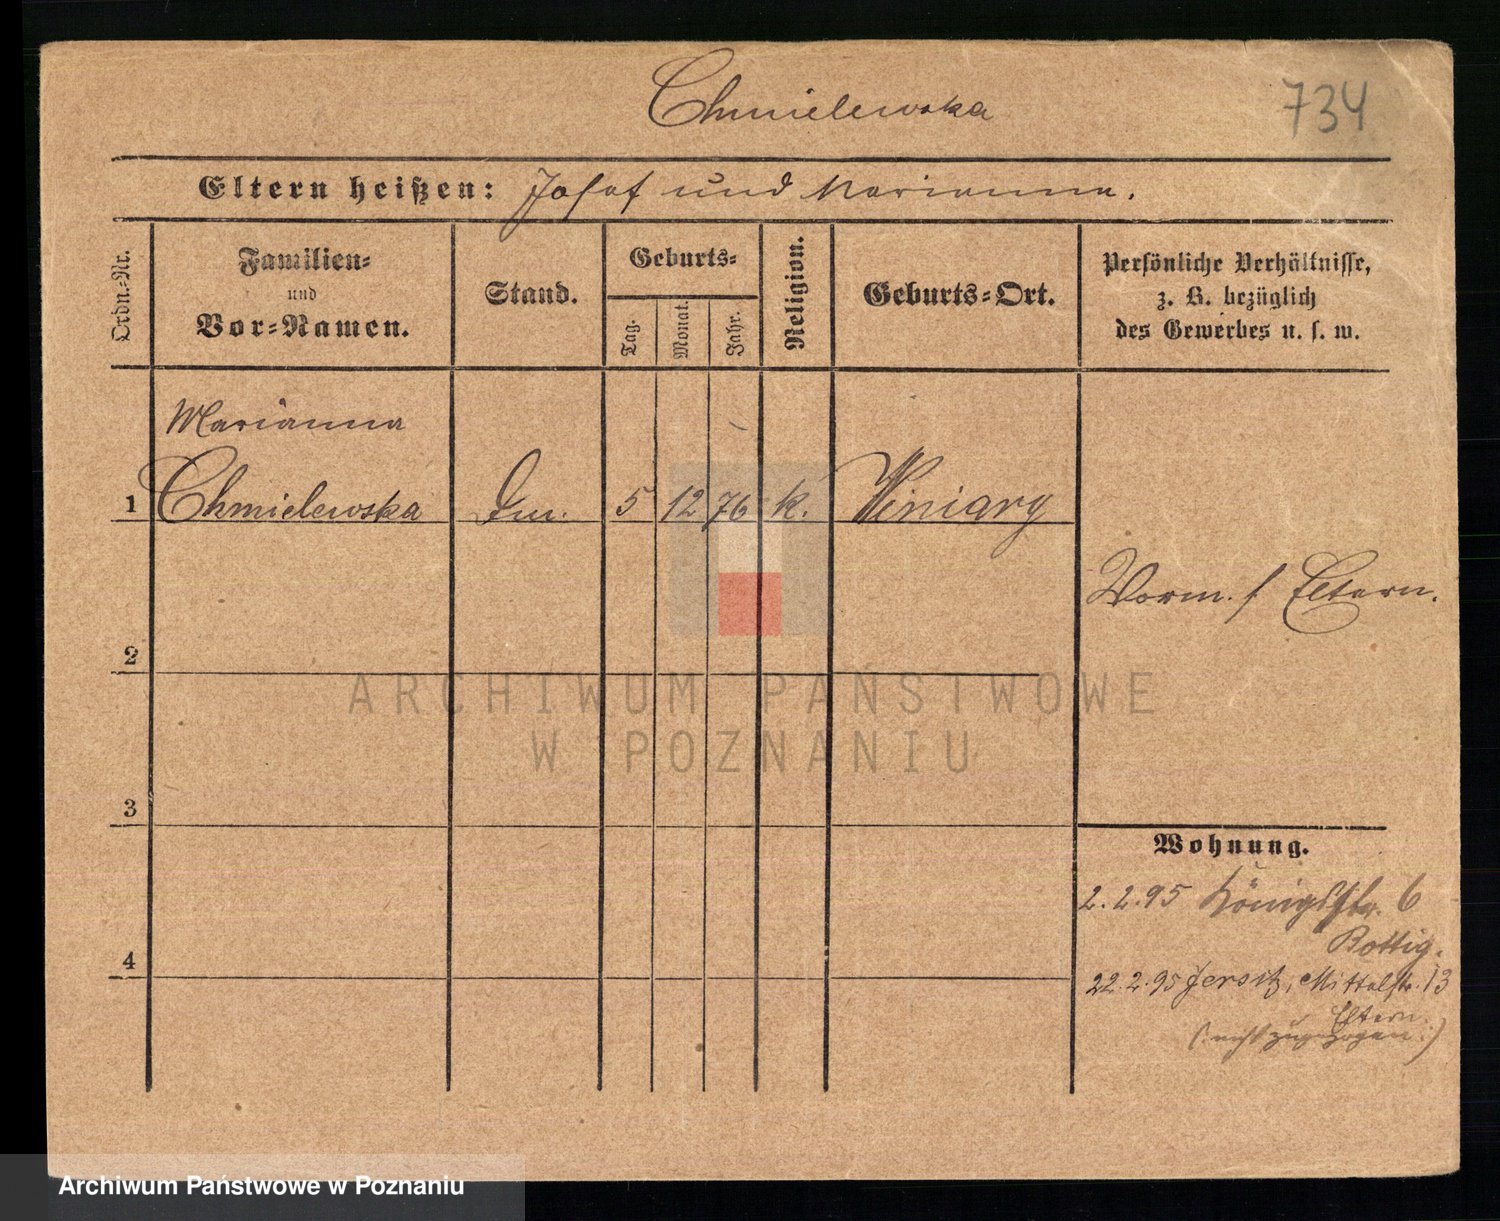 Chmielewska
734
Eltern heißen: Josef und Marianna.
Ordn.-Nr.
Familien-
und
Vor-Namen.
Stand.
Geburts-
Tag.
Monat.
Jahr.
Religion.
Geburts-Ort.
Persönliche Verhältnisse,
z. B. bezüglich
des Gewerbes u. s. w.
Marianna
1 Chmielewska 5 12 76 k. Winiary
Vorm. s Eltern.
2
3
4
Wohnung.
2.2.95 Königsstr. 6
Bottig.
22.2.95 Jersitz, Mittelstr. 13
Eltern.
(nicht zugezogen.)
ARCHIWUM PAŃSTWOWE
W POZNANIU
Archiwum Państwowe w Poznaniu